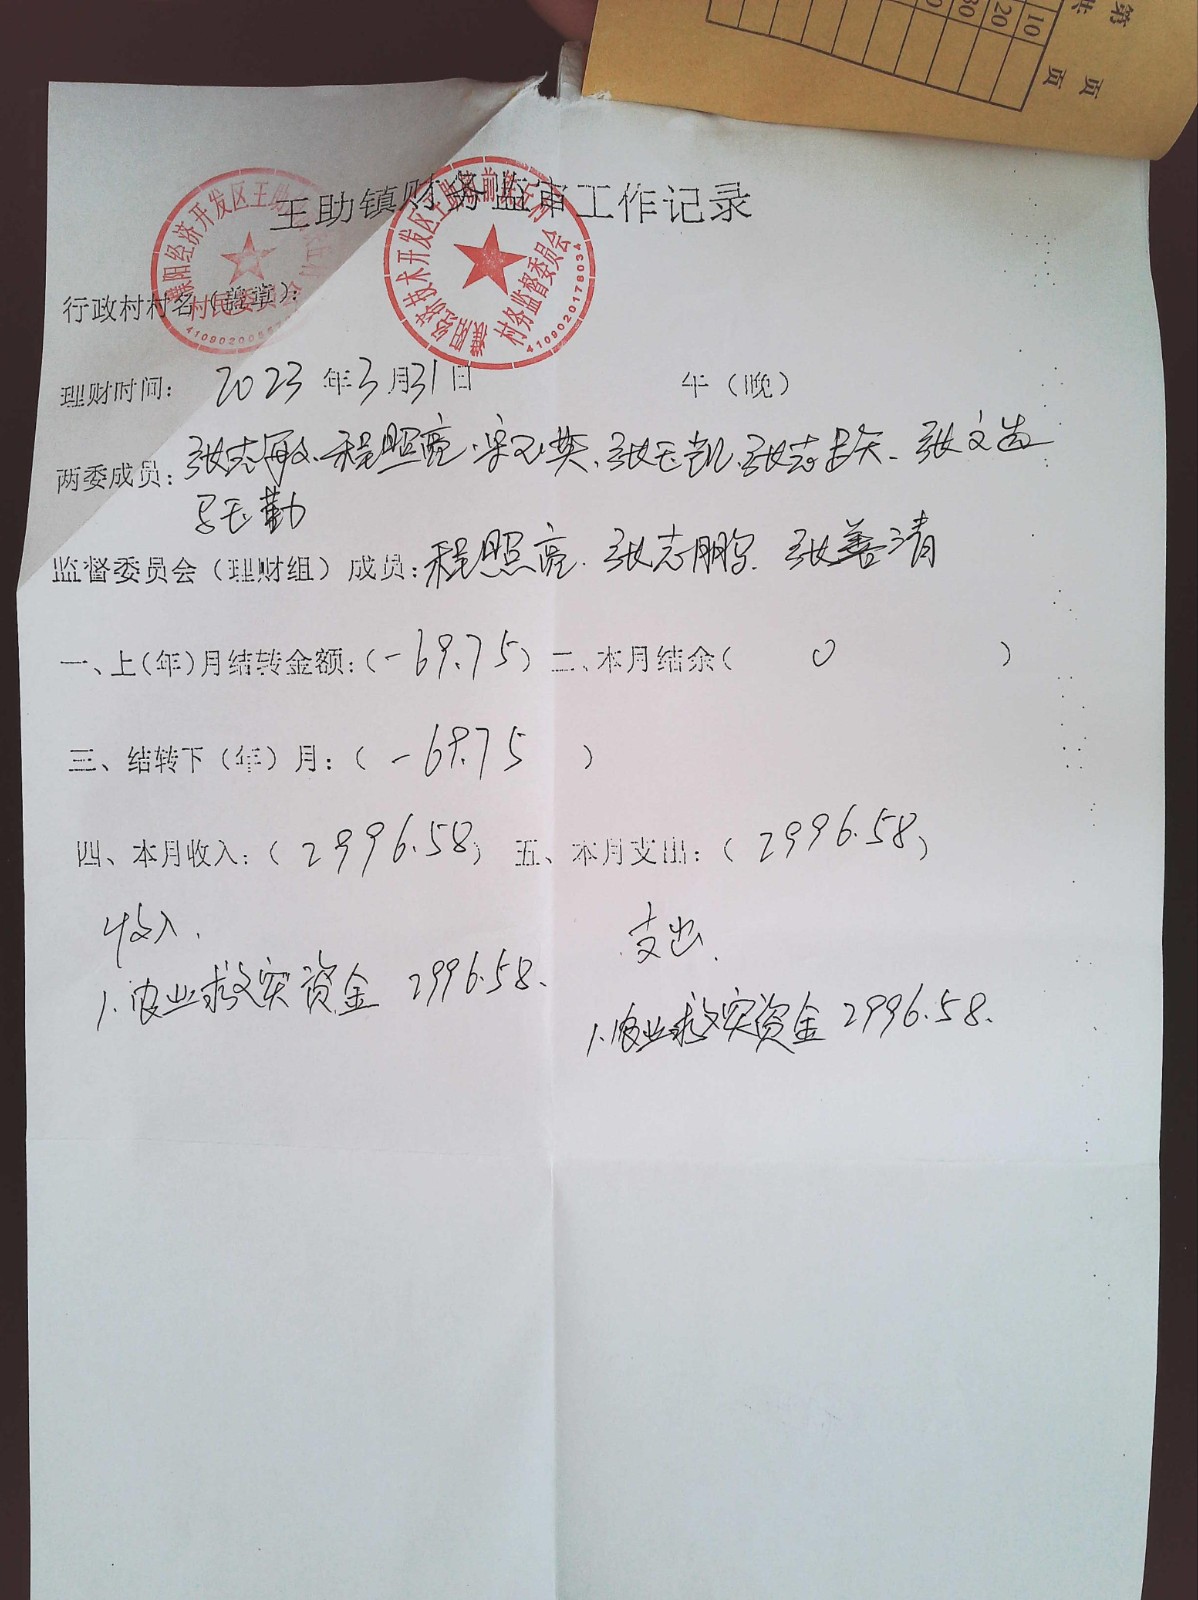 第 页
共 页
10
20
30
王助镇财务监审工作记录
濮阳经济开发区王助
村民委员会
濮阳经济技术开发区王助镇前
村务监督委员会
4109020178034
行政村村名(盖章):
理财时间: 2023年3月31日 午(晚)
两委成员: 张志敏、程照亮、宋玉英、张玉凯、张志
监督委员会(理财组)成员: 程照亮、张志鹏、张善清
一、上(年)月结转金额:(-69.75) 二、本月结余( 0 )
三、结转下(年)月:( -69.75 )
四、本月收入:( 2996.58 ) 五、本月支出:( 2996.58 )
收入.
支出.
1.农业救灾资金 2996.58.
1.农业救灾资金 2996.58.